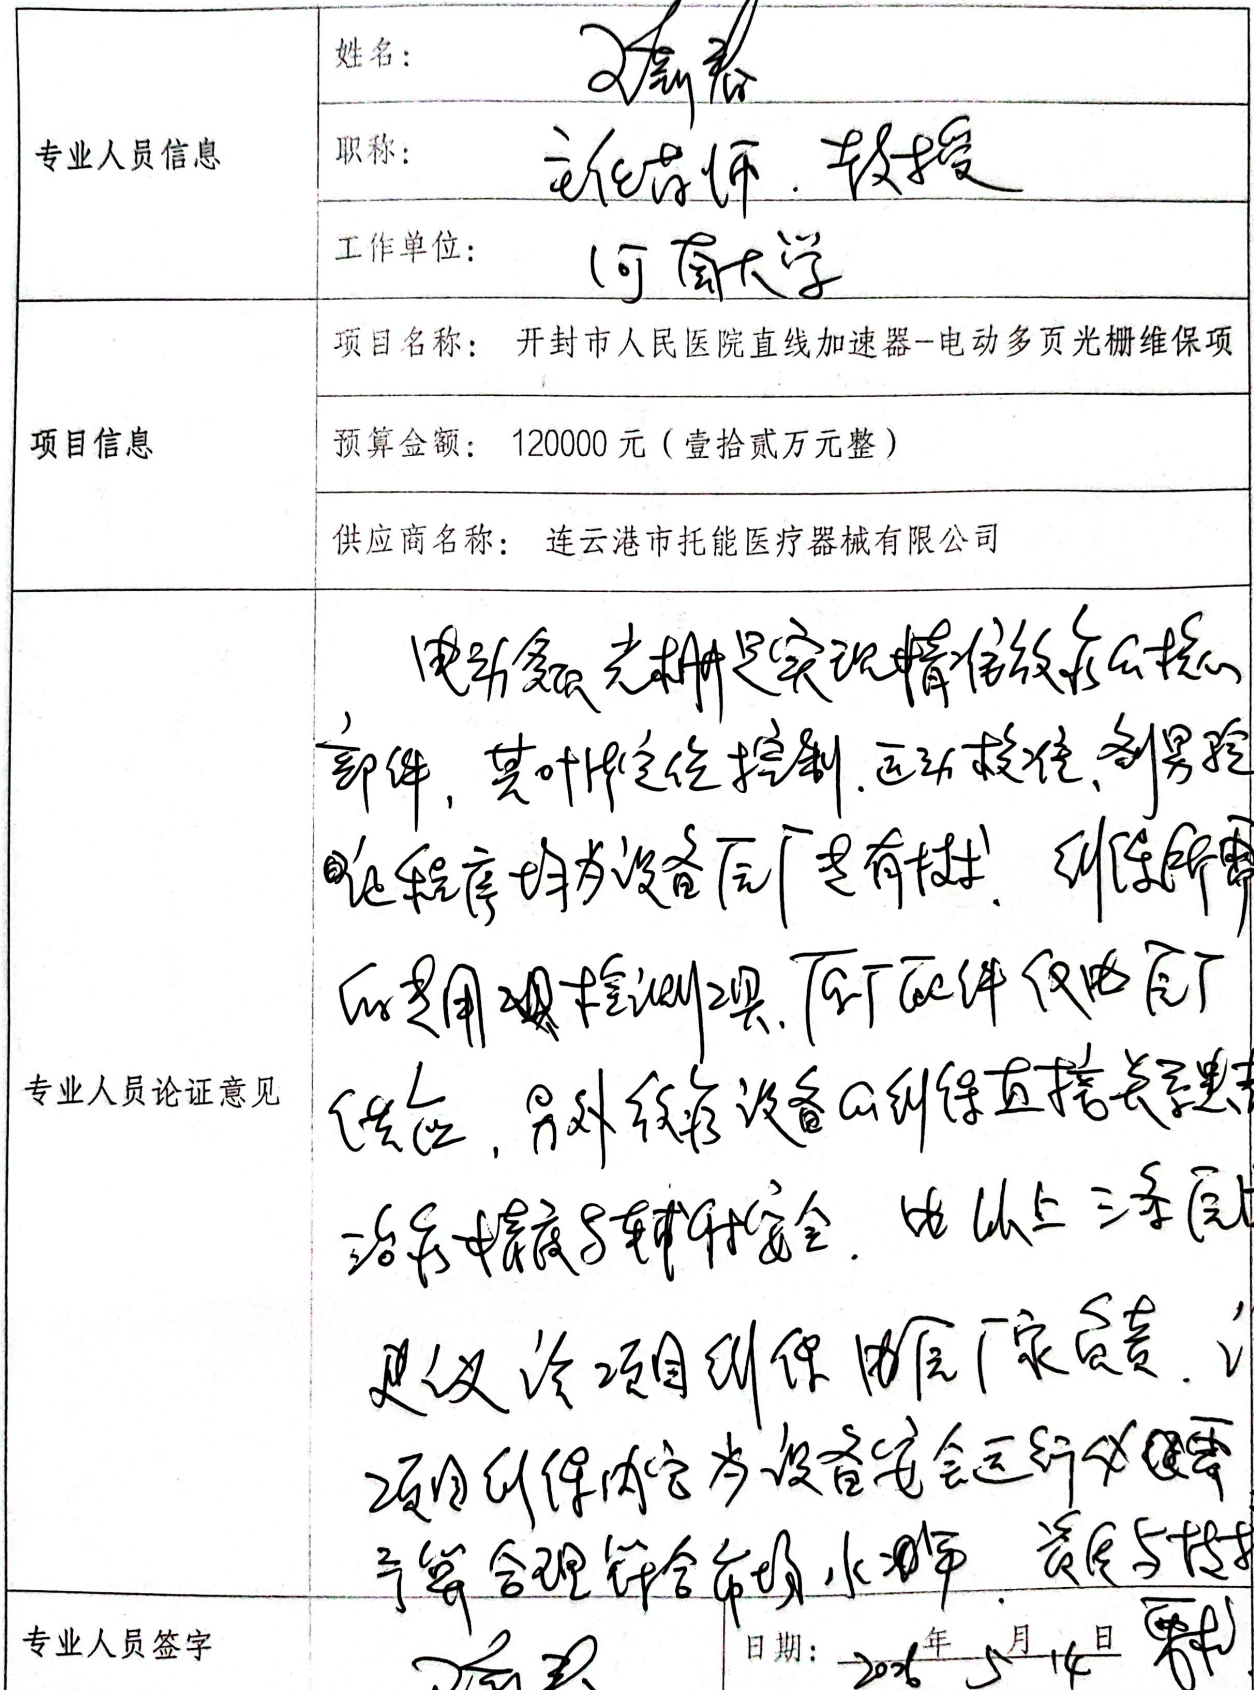 专业人员信息
姓名：
职称： 主任药师．教授
工作单位： 河南大学
项目信息
项目名称： 开封市人民医院直线加速器-电动多页光栅维保项
预算金额： 120000元（壹拾贰万元整）
供应商名称： 连云港市托能医疗器械有限公司
专业人员论证意见
电动多页光栅是实现精准放疗的核心
部件，其叶片定位控制、运动校准、剂量验
证程序均为设备原厂专有技术．维保所需
的专用 检测工具、原厂配件仅由原厂
供应，另外放疗设备的维保直接关系患者
治疗精度与辐射安全．由以上三条原
建议该项目维保由原厂家负责．
项目维保内容为设备安全运行必需
预算合理符合市场水平． 资质与技
专业人员签字
日期： 2026年5月14日